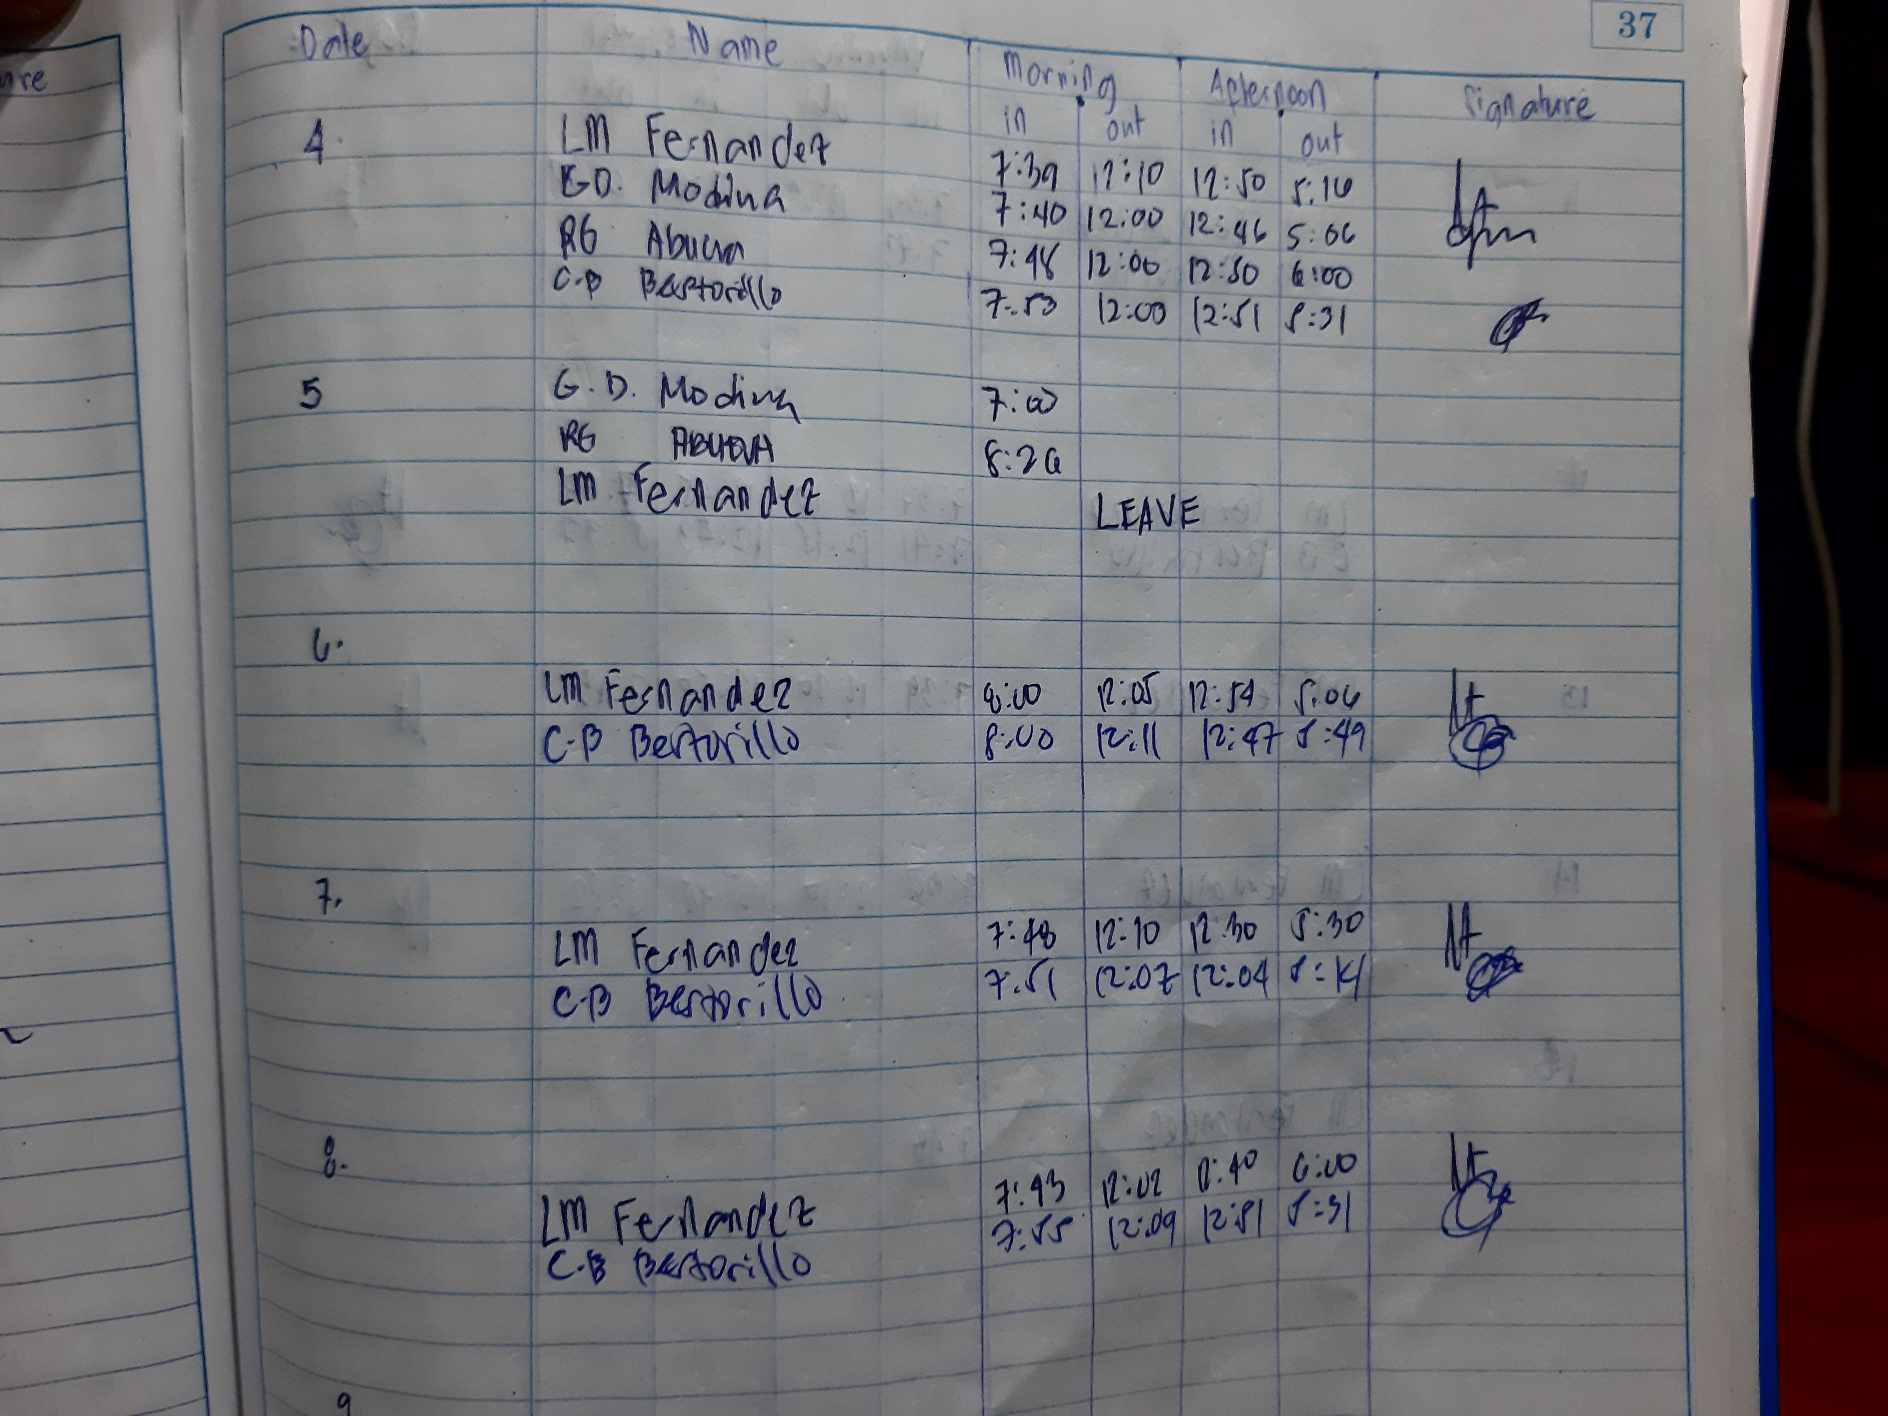 37
Date Name Morning Afternoon Signature
in out in out
4. LM Fernandez 7:39 12:10 12:50 5:10
GD. Modina 7:40 12:00 12:46 5:06
RG 7:48 12:00 12:50 6:00
C-B Bertorillo 7:53 12:00 12:51 5:31
5 G.D. Modina 7:00
RG 8:26
LM Fernandez LEAVE
6.
LM Fernandez 8:00 12:05 12:54 5:06
C-B Bertorillo 8:00 12:11 12:47 5:49
7.
LM Fernandez 7:48 12:10 12:30 5:30
C-B Bertorillo 7:51 12:07 12:04 5:14
8.
LM Fernandez 7:43 12:02 12:40 6:00
C-B Bertorillo 7:55 12:09 12:51 5:31
9